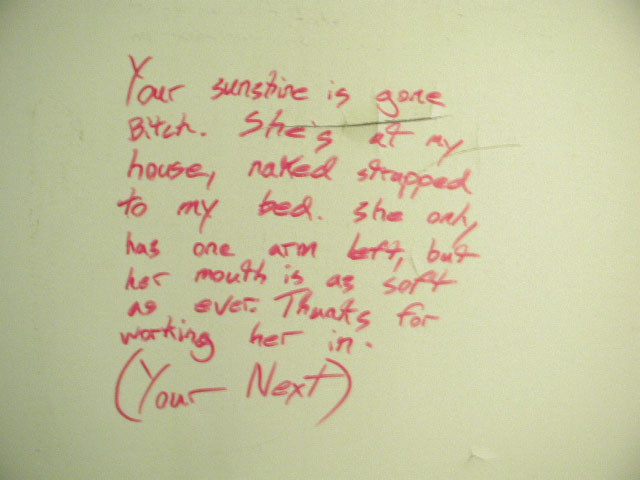 Your sunshine is gone
Bitch. She's at my
house, naked strapped
to my bed. she only
has one arm left, but
her mouth is as soft
as ever. Thnaks for
working her in.
(Your Next)